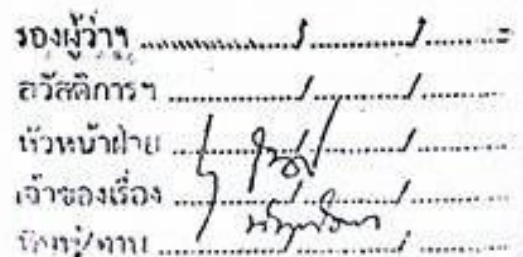 รองผู้ว่าฯ ......................./......................./...............
สวัสดิการฯ ......................./......................./...............
หัวหน้าฝ่าย ......................./......................./...............
เจ้าของเรื่อง ......................./......................./...............
พิมพ์/ทาน ......................./......................./...............